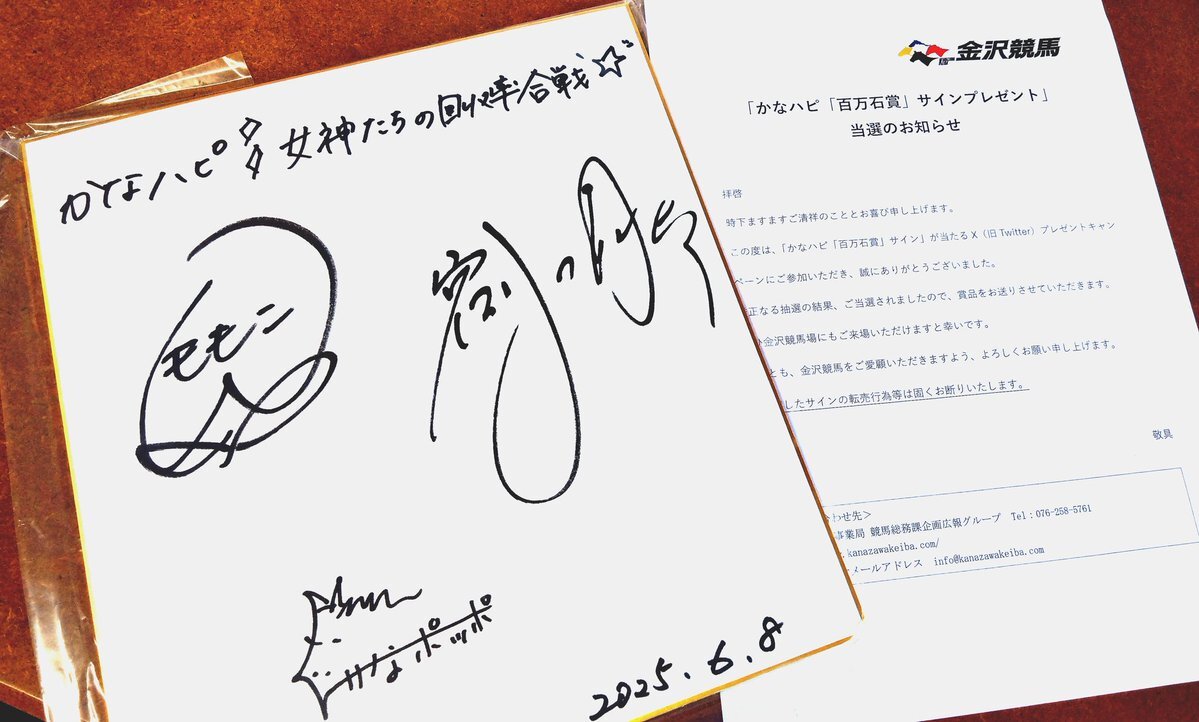 かなハピ 女神たちの回収率合戦☆
モモン
2025.6.8
かなポッポ
金沢競馬
「かなハピ「百万石賞」サインプレゼント」
当選のお知らせ
拝啓
時下ますますご清祥のこととお喜び申し上げます。
この度は、「かなハピ「百万石賞」サイン」が当たるX（旧Twitter）プレゼントキャン
ペーンにご参加いただき、誠にありがとうございました。
正なる抽選の結果、ご当選されましたので、賞品をお送りさせていただきます。
金沢競馬場にもご来場いただけますと幸いです。
とも、金沢競馬をご愛顧いただきますよう、よろしくお願い申し上げます。
したサインの転売行為等は固くお断りいたします。
敬具
わせ先＞
事業局 競馬総務課企画広報グループ Tel：076-258-5761
.kanazawakeiba.com/
メールアドレス info@kanazawakeiba.com